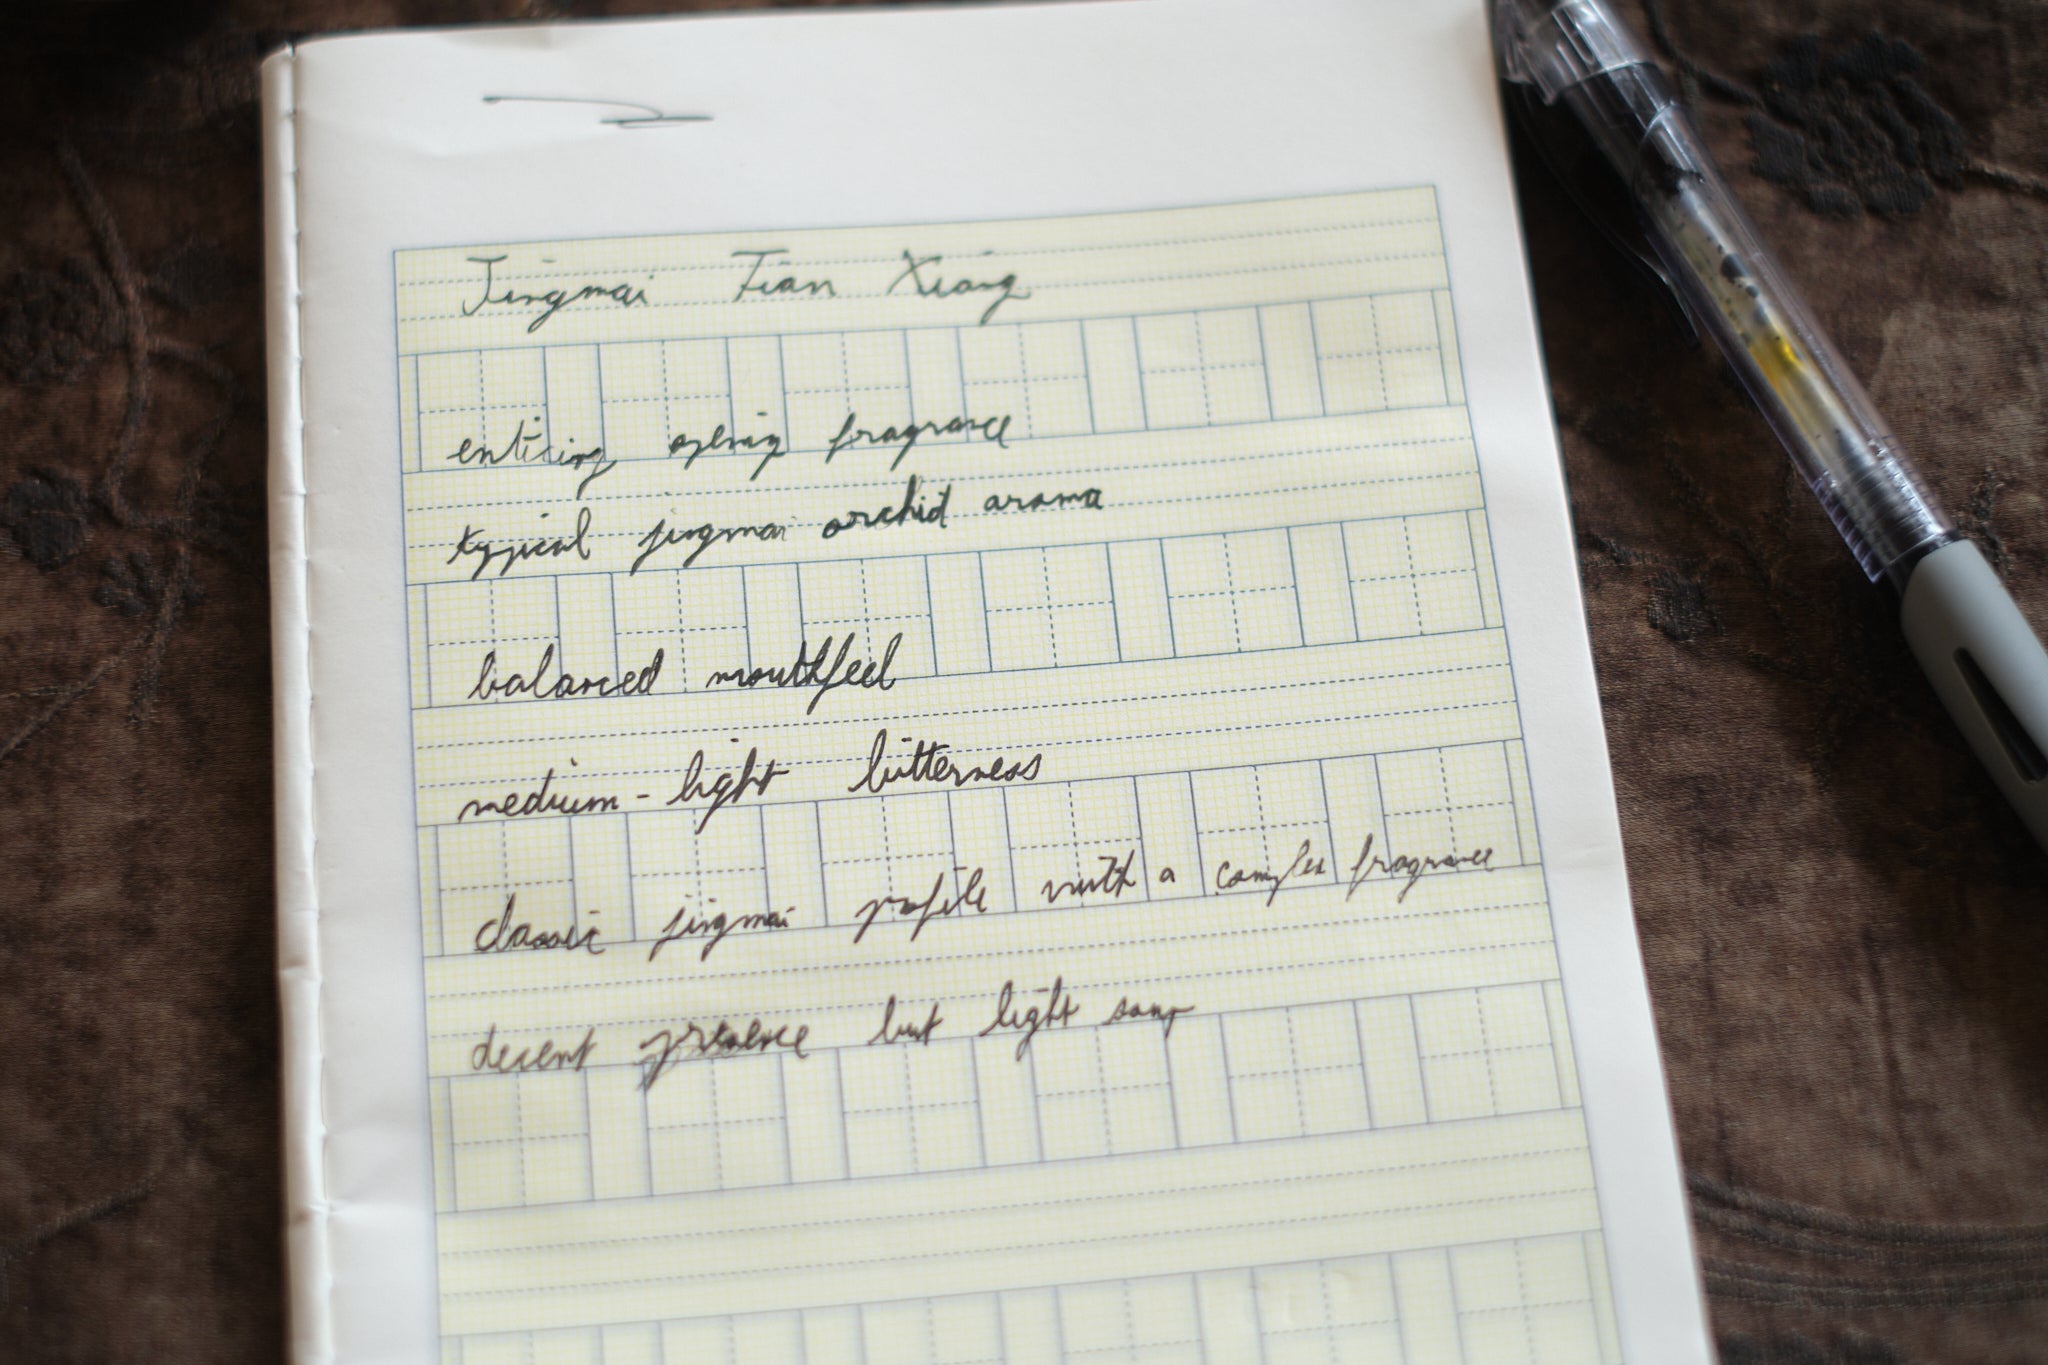 Jingmai Tian Xiang
enticing opening fragrance
typical jingmai orchid aroma
balanced mouthfeel
medium-light bitterness
classic jingmai profile with a complex fragrance
decent presence but light soup